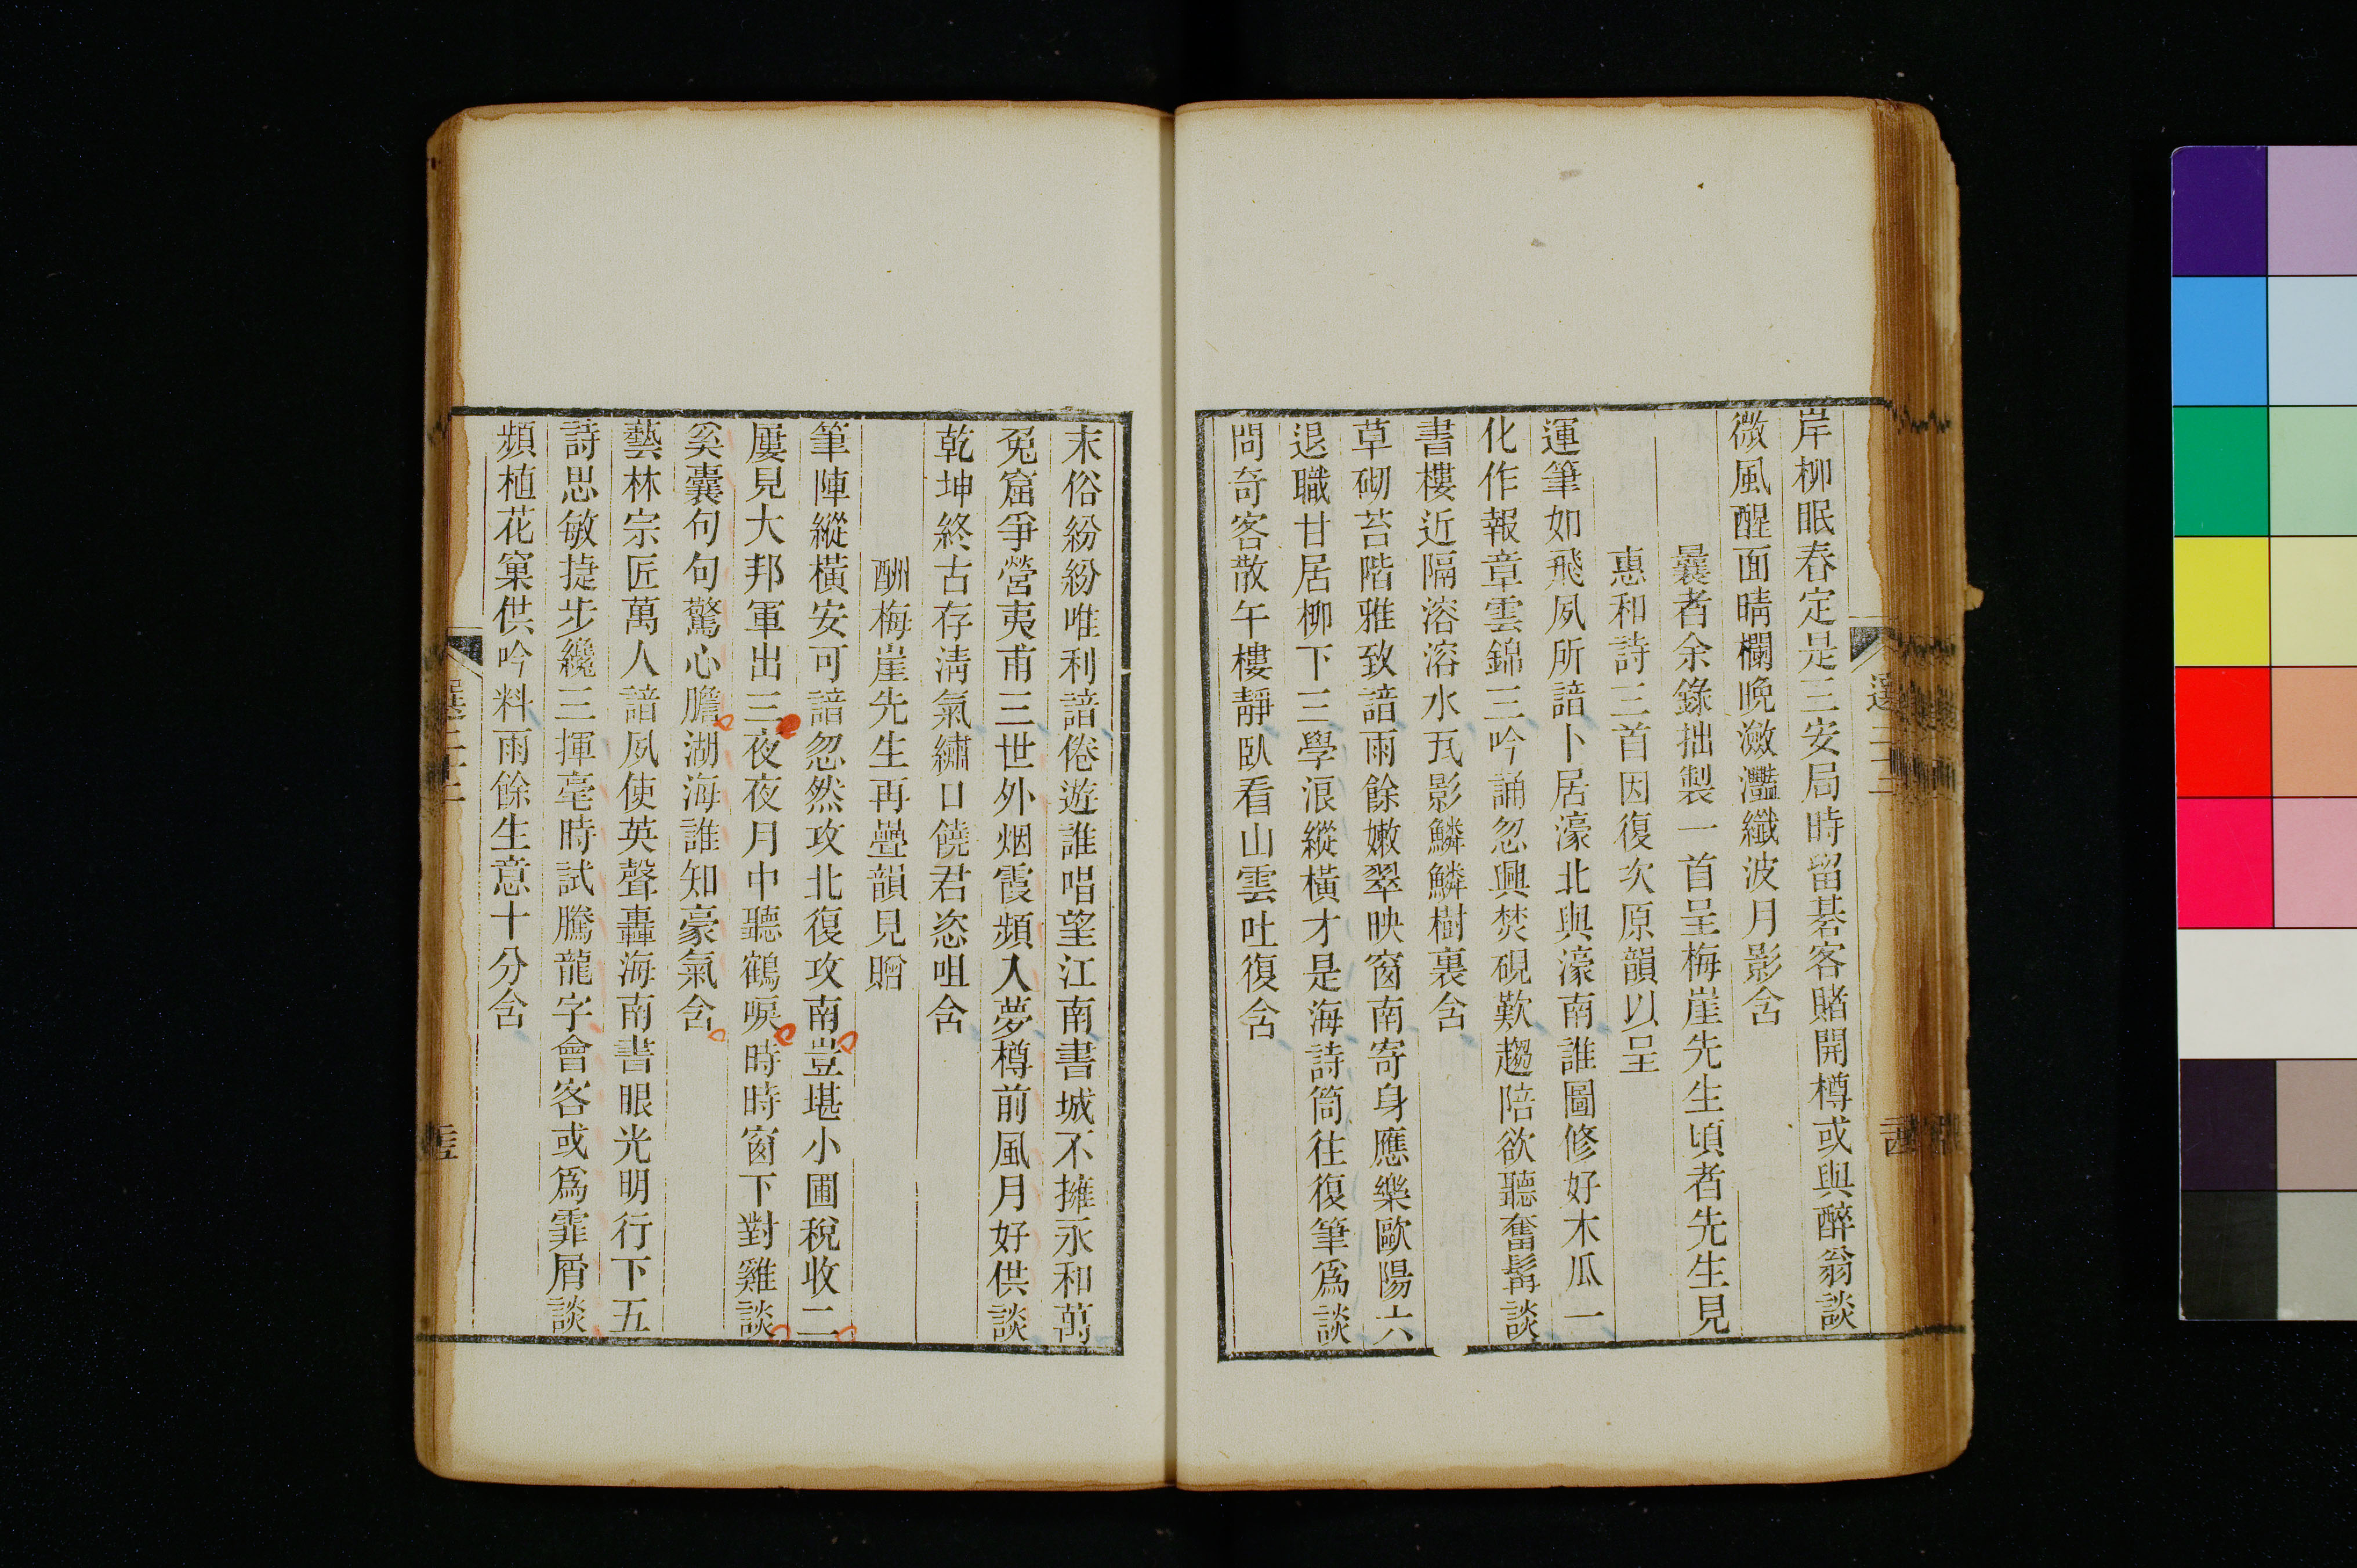 岸柳眠春定是三安局時留碁客賭開樽或與醉翁談
微風醒面晴欄晚瀲灩纖波月影含
曩者余錄拙製一首呈梅崖先生頃者先生見
惠和詩三首因復次原韻以呈
運筆如飛夙所諳卜居濠北與濠南誰圖修好木瓜一
化作報章雲錦三吟誦忽興焚硯歎趨陪欲聽奮髯談
書樓近隔溶溶水瓦影鱗鱗樹裏含
草砌苔階雅致諳雨餘嫩翠映窗南寄身應樂歐陽六
退職甘居柳下三學浪縱橫才是海詩筒往復筆爲談
問奇客散午樓靜臥看山雲吐復含
末俗紛紛唯利諳倦遊誰唱望江南書城不擁永和萬
兔窟爭營夷甫三世外烟霞頻入夢樽前風月好供談
乾坤終古存淸氣繡口饒君恣咀含
酬梅崖先生再疊韻見贈
筆陣縱橫安可諳忽然攻北復攻南豈堪小圃稅收二
屢見大邦軍出三夜夜月中聽鶴唳時時窗下對雞談
奚囊句句驚心膽湖海誰知豪氣含
藝林宗匠萬人諳夙使英聲轟海南書眼光明行下五
詩思敏捷步纔三揮毫時試騰龍字會客或爲霏屑談
頻植花窠供吟料雨餘生意十分含